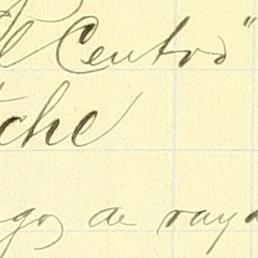 el Centro"
che
gos de raya